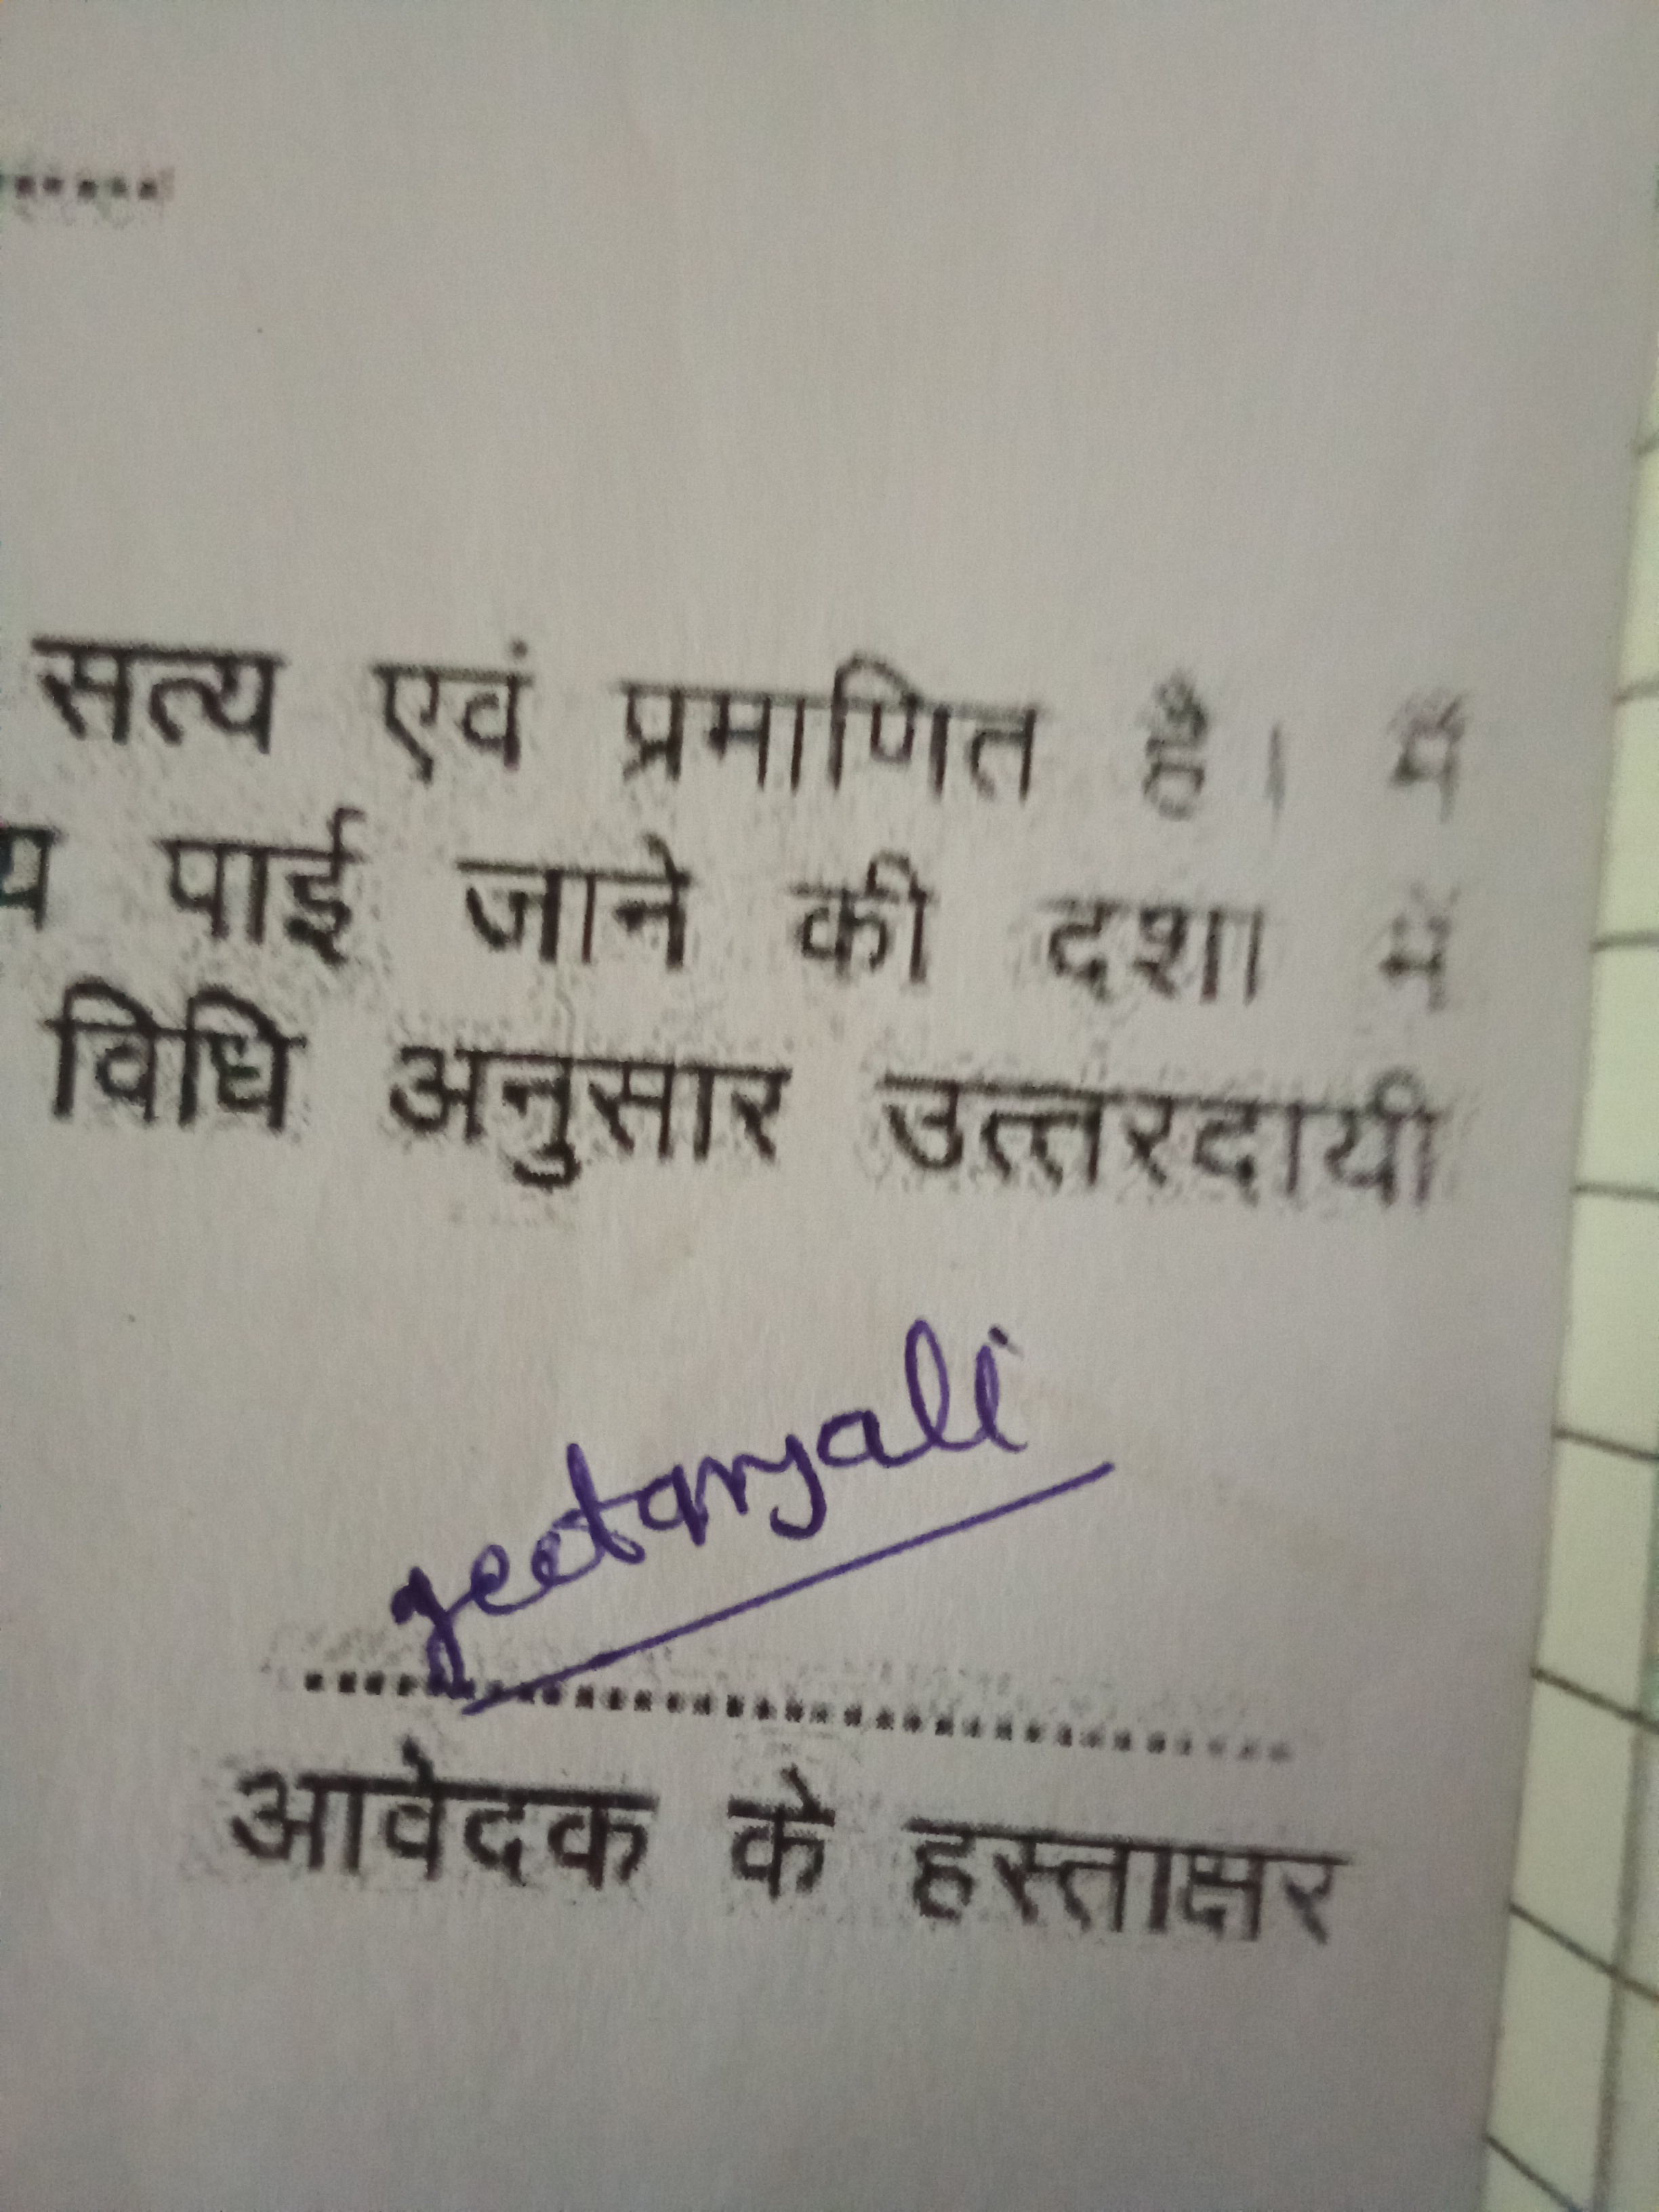 सत्य एवं प्रमाणित है। मैं
पाई जाने की दशा में
विधि अनुसार उत्तरदायी
geetanjali
आवेदक के हस्ताक्षर